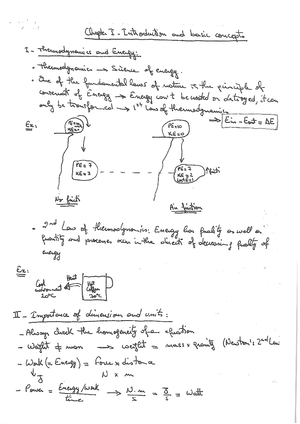 Chapter I - Introduction and basic concepts
I - Thermodynamics and Energy:
• Thermodynamics → Science of energy.
• One of the fundamental laws of nature is the principle of
conservat of Energy → Energy can't be created or destroyed, it can
only be transformed → 1st Law of thermodynamics
→ Ein - Eout = ΔE
Ex:
KE=0
PE=10
KE=0
PE=7
KE=3
PE=7
KE=2
No friction
Air friction
• 2nd Law of thermodynamics: Energy has quality as well as
quantity and processes occur in the direct of decreasing quality of
energy
Ex:
Cool
environment
20°C
Heat
Hot
Coffee
70°C
II - Importance of dimension and units:
- Always check the homogeneity of an equation
- Weight ≠ mass → weight = mass × gravity (Newton's 2nd Law
- Work (≡ Energy) = Force × distance
↳ J N × m
- Power = Energy/work / time → N.m / s = J / s = Watt